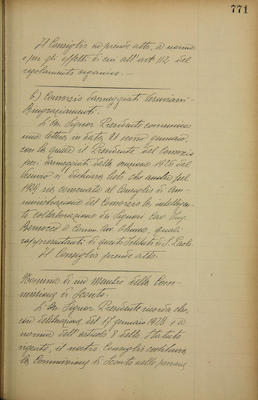 771
Il Consiglio ne prende atto, a norma
e per gli effetti di cui all'art. 112 del
regolamento organico. —
6) Consorzio danneggiati
Ringraziamenti.
Il Sig. Signor Presidente comunica
una lettera in data, 21 corr. gennaio,
con la quale il Presidente del Consorzio
per i danneggiati dalla eruzione 1906 del
Vesuvio si dichiara lieto che anche pel
1928 sia conservata al Consiglio di Am-
ministrazione del Consorzio la intelligen-
te collaborazione dei Signori Cav. Ing.
e Comm. Avv. quali
rappresentanti di questo Istituto di S. Paolo.
Il Consiglio prende atto.
Nomina di un Membro della Com-
missione di Sconto.
Il Sig. Signor Presidente ricorda che,
con deliberazione del 17 gennaio 1928 e a
norma dell'articolo 8 dello Statuto
vigente, il nostro Consiglio costituiva
la Commissione di Sconto nelle persone